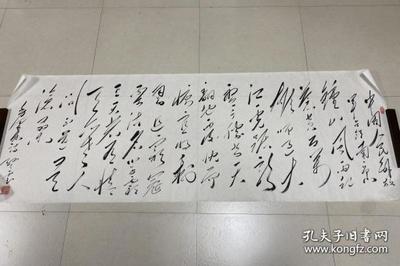 中国人民解放
军占领南京
钟山风雨起
苍黄百万
雄师过大
江虎踞龙
盘今胜昔天
翻地覆慨而
慷宜将剩
勇追穷寇
不可沽名学霸
王天若有情
天亦老人
间正道是
沧桑
孔夫子旧书网